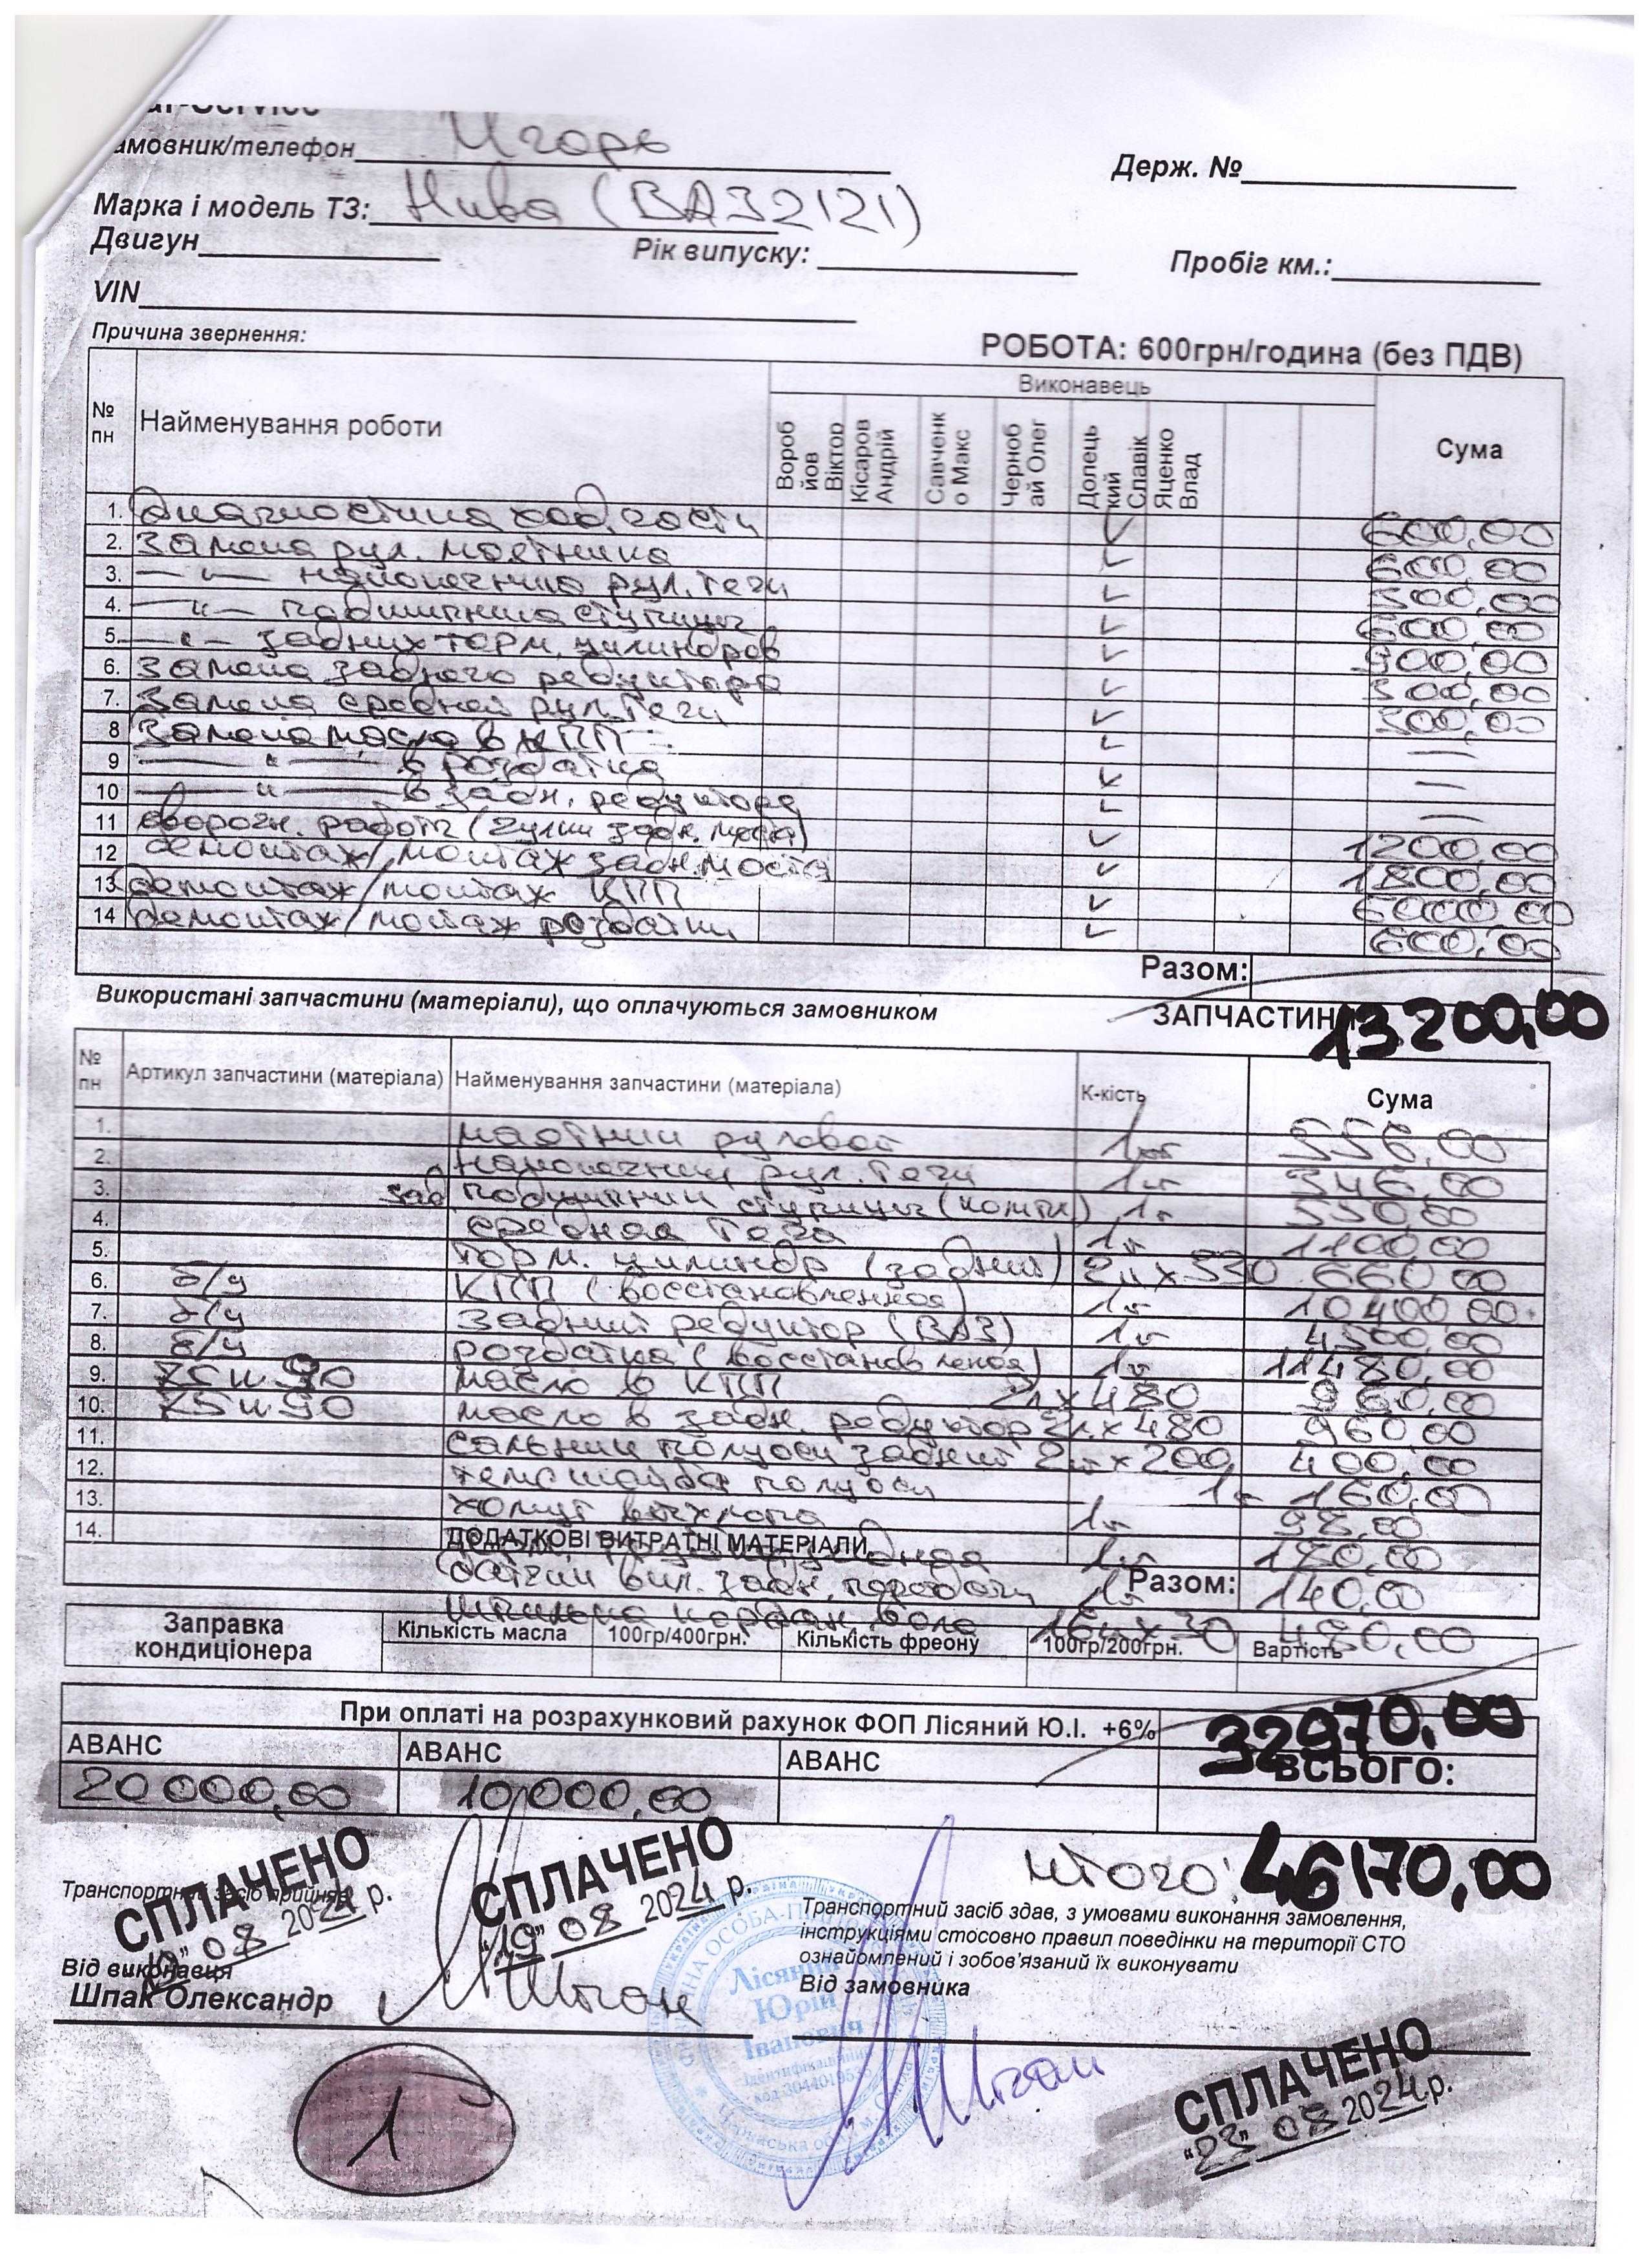 Замовник/телефон Игорь
Держ. №
Марка і модель ТЗ: Нива (ВАЗ2121)
Двигун Рік випуску: Пробіг км.:
VIN
Причина звернення:
РОБОТА: 600грн/година (без ПДВ)
№ пн Найменування роботи Виконавець Сума
Вороб йов Віктор Кісаров Андрій Савченк о Макс Черноб ай Олег Долець кий Славік Яценко Влад
1. Диагностика ход. части 600,00
2. Замена рул. маятника 600,00
3. —"— наконечника рул. тяги 300,00
4. —"— подшипника ступицы 600,00
5. —"— задних торм. цилиндров 900,00
6. Замена заднего редуктора 300,00
7. Замена средней рул. тяги 300,00
8 Замена масла в КПП —
9 —"— в роздатке —
10 —"— в задн. редукторе —
11 сварочн. работы ( задн. моста) 1200,00
12 демонтаж/монтаж задн. моста 1800,00
13 демонтаж/монтаж КПП 6000,00
14 демонтаж/монтаж роздатки 600,00
Разом:
Використані запчастини (матеріали), що оплачуються замовником ЗАПЧАСТИНИ
13200,00
№ пн Артикул запчастини (матеріала) Найменування запчастини (матеріала) К-кість Сума
1. маятник рулевой 1шт 556,00
2. наконечник рул. тяги 1шт 346,00
3. зад подшипник ступицы (компл) 1шт 550,00
4. средняя тяга 1шт 1100,00
5. торм. цилиндр (задний) 2шт х 330 660,00
6. б/у КПП (восстановленная) 1шт 10400,00
7. б/у Задний редуктор (ВАЗ) 1шт 4500,00
8. б/у роздатка (восстановленая) 1шт 11480,00
9. 75w90 масло в КПП 2л х 480 960,00
10. 75w90 масло в задн. редуктор 2л х 480 960,00
11. сальник полуоси задний 2шт х 200 400,00
12. шайба полуоси 1шт 160,00
13. хомут выхлопа 1шт 98,00
14. 1шт 180,00
ДОДАТКОВІ ВИТРАТНІ МАТЕРІАЛИ
датчик вкл. задн. передачи 1шт 140,00
Разом:
шпилька кардан. вала 16шт х 30 480,00
Заправка кондиціонера Кількість масла 100гр/400грн. Кількість фреону 100гр/200грн. Вартість
При оплаті на розрахунковий рахунок ФОП Лісяний Ю.І. +6%
32970,00
АВАНС АВАНС АВАНС ВСЬОГО:
20000,00 10000,00
СПЛАЧЕНО
08 2024 р.
СПЛАЧЕНО
"19" 08 2024 р.
Итого: 46170,00
Транспортний засіб прийняв
Транспортний засіб здав, з умовами виконання замовлення,
інструкціями стосовно правил поведінки на території СТО
ознайомлений і зобов'язаний їх виконувати
Від виконавця
Від замовника
Шпак Олександр
Лісяний
Юрій
Іванович
СПЛАЧЕНО
"23" 08 2024 р.
1